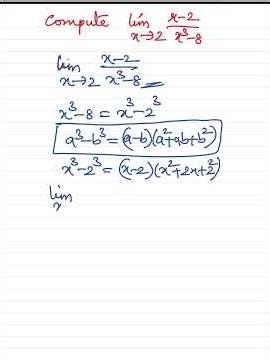 Compute lim x→2 x-2/x³-8
lim x→2 x-2/x³-8
x³-8 = x³-2³
a³-b³=(a-b)(a²+ab+b²)
x³-2³=(x-2)(x²+2x+2²)
lim
x